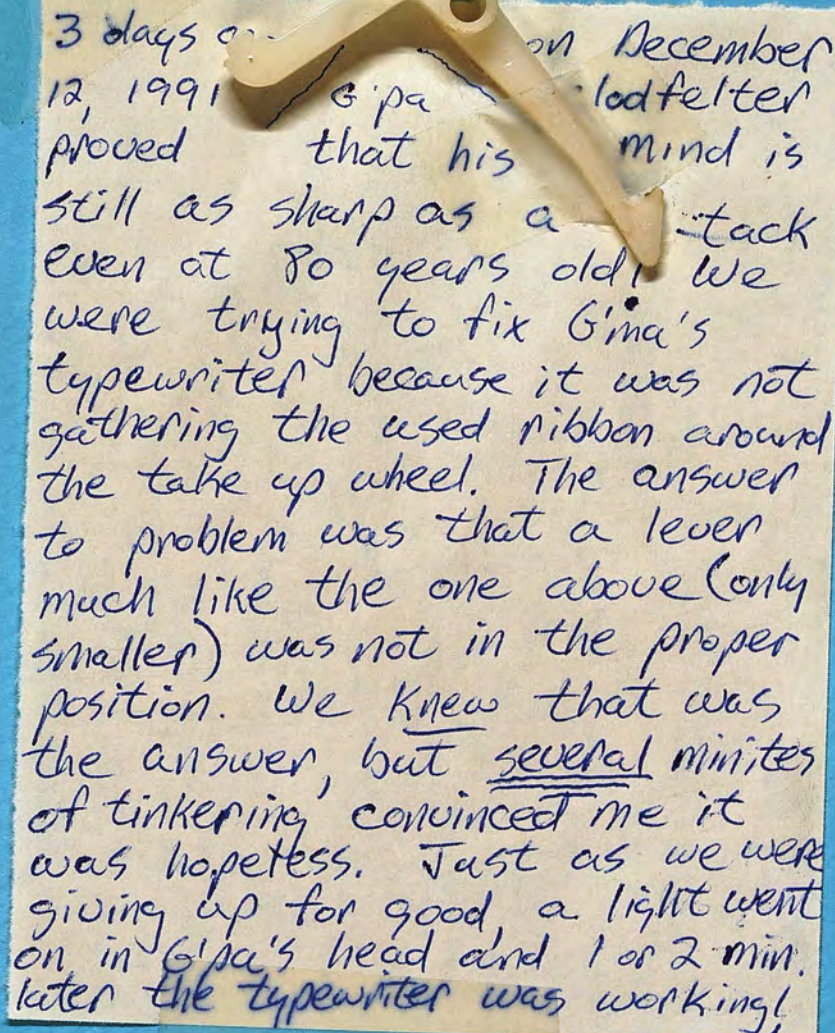 3 days on December
12, 1991 G'pa lodfelter
proved that his mind is
still as sharp as a tack
even at 80 years old! We
were trying to fix G'ma's
typewriter because it was not
gathering the used ribbon around
the take up wheel. The answer
to problem was that a lever
much like the one above (only
smaller) was not in the proper
position. We knew that was
the answer, but several minites
of tinkering convinced me it
was hopeless. Just as we were
giving up for good, a light went
on in G'pa's head and 1 or 2 min.
later the typewriter was working!